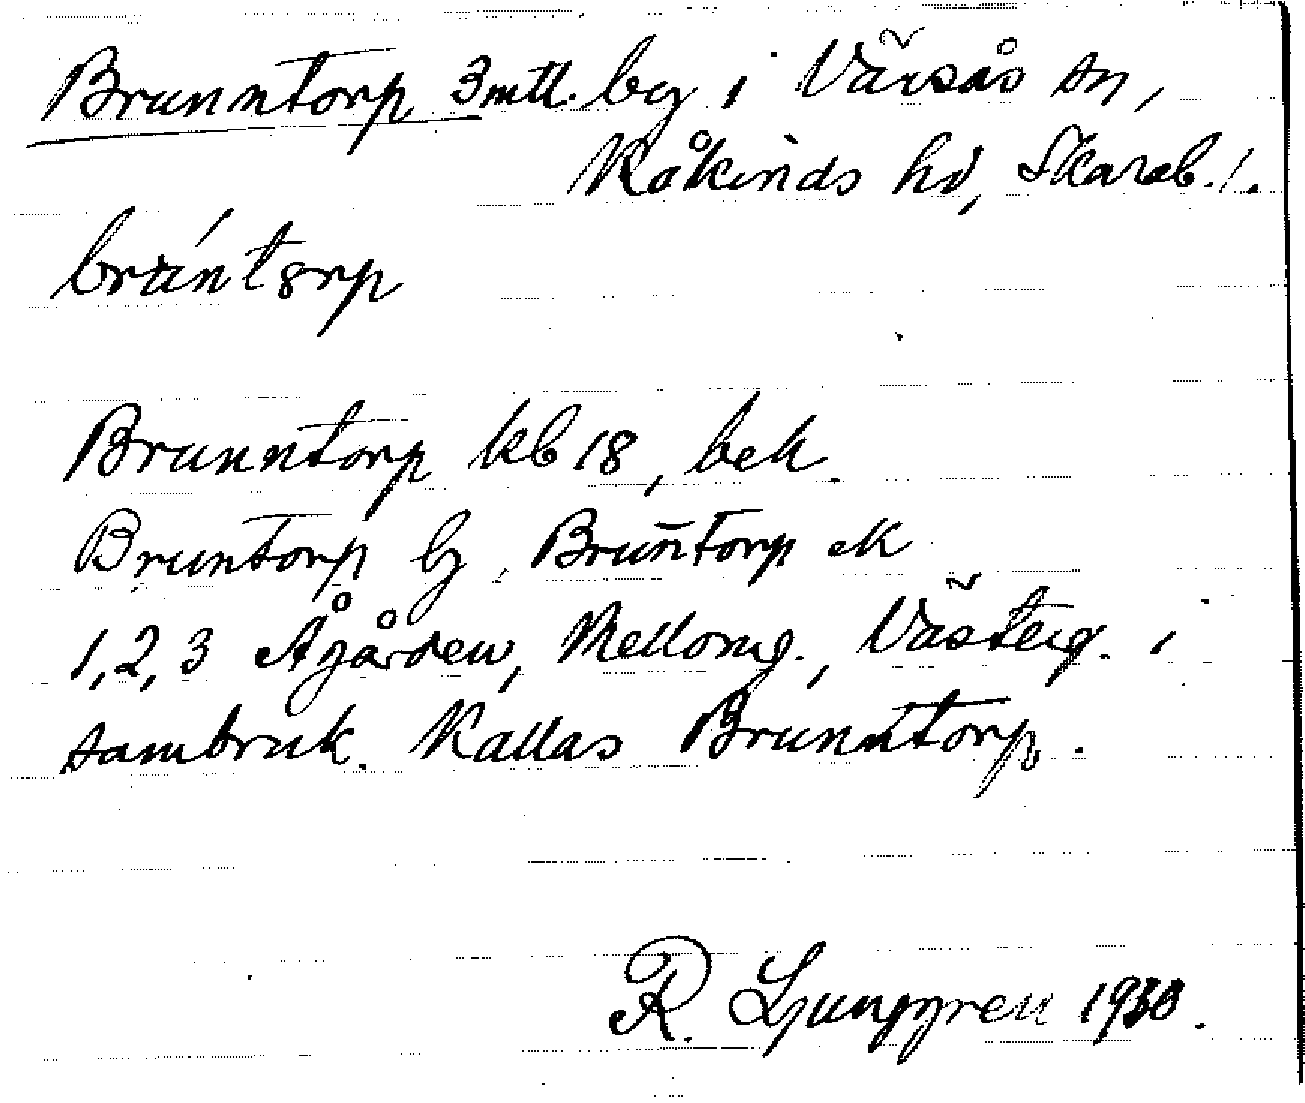 Brunntorp 3 mtl. by i Värsås sn,
Kåkinds hd, Skarab. l.
brúntørp
Brunntorp kb 18, bek.
Bruntorp by, Brun̄torp ek
1, 2, 3 Ågården, Mellomg., Västerg. i
sambruk. Kallas Brunntorp.
R. Ljunggren 1930.